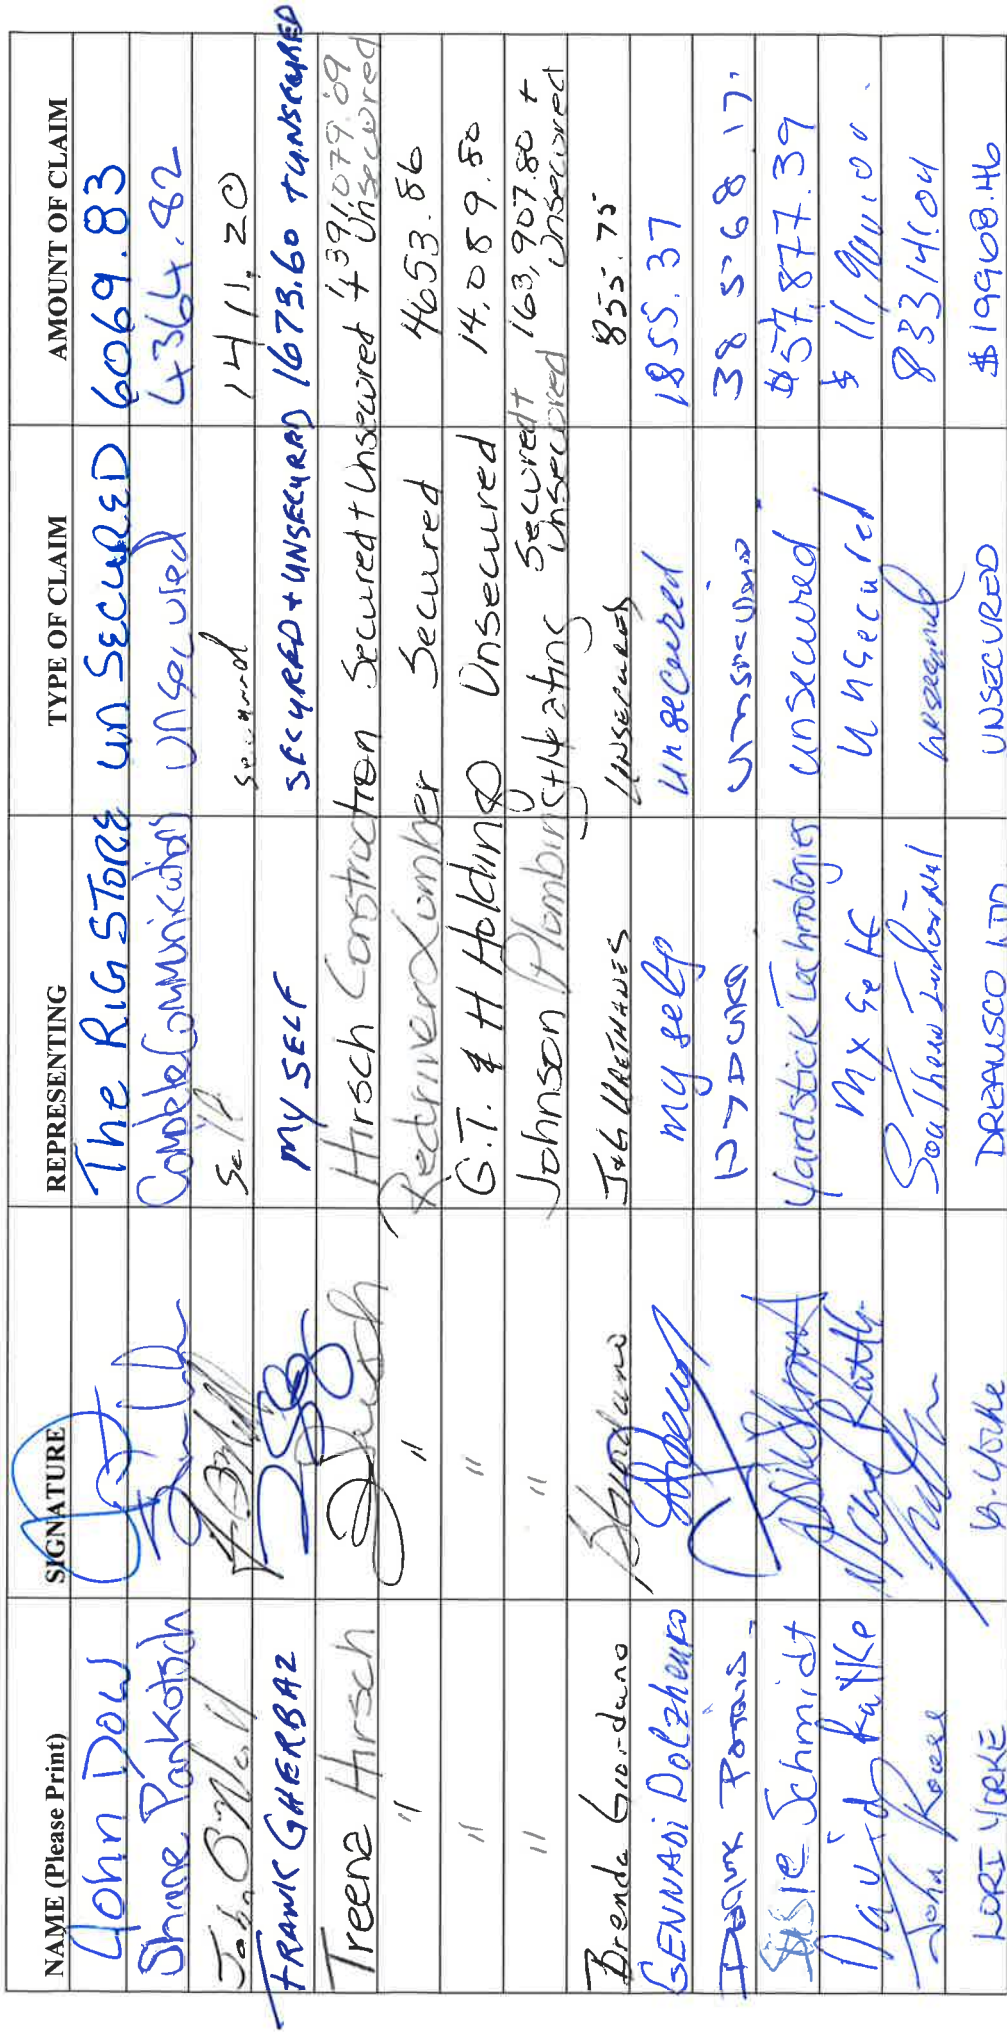 NAME (Please Print) SIGNATURE REPRESENTING TYPE OF CLAIM AMOUNT OF CLAIM
John Dow The RIG STORE un SECURED 6069.83
Shane Pankotsch Complete Communications unsecured 4364.82
John O'Neill Self Secured 1411.20
FRANK GHERBAZ MY SELF SECURRED + UNSECURRED 1673.60 + UNSECURED
Treena Hirsch Hirsch Construction Secured + Unsecured 439,079.09 Unsecured
" " Redriver Lumber Secured 4653.86
" " G.T. & H Holding Unsecured 14,089.50
" " Johnson Plumbing + Heating Secured + Unsecured 163,907.80 + Unsecured
Brenda Giordano BGiordano J+G URETHANES UNSECURED 855.75
GENNADI Dolzhenko my self unsecured 1855.37
unsecured 385568.17.
Susie Schmidt Yardstick Technologies unsecured $57,877.39
David Ratke David Ratke Myself unsecured
John Rouse Southern unsecured 83314.04
LORI YORKE L. Yorke DREAMSCO LTD UNSECURED $19968.46